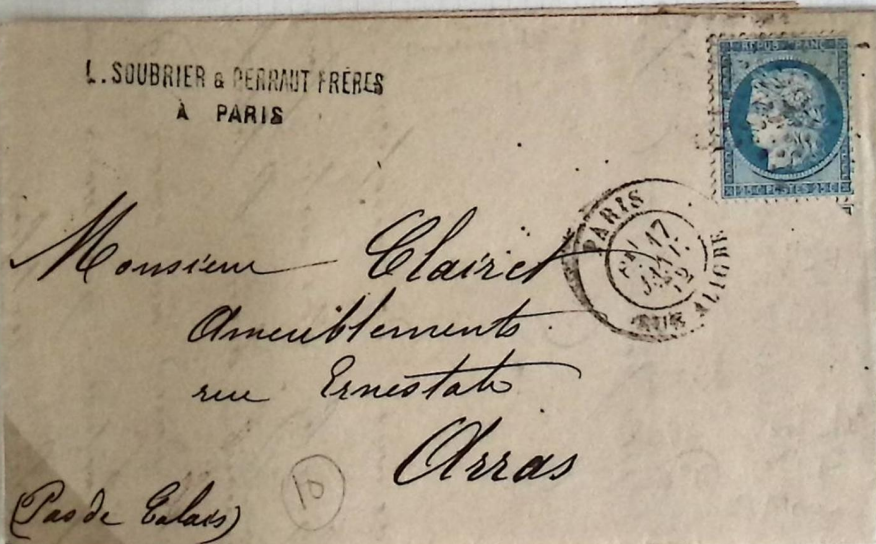 L. SOUBRIER & PERRAUT FRÈRES
À PARIS
REPUB. FRANC.
25 C POSTES 25 C
PARIS
17
JANV.
72
RUE ALIGRE
Monsieur Clairet
Ameublements
rue Ernestale
Arras
(Pas de Calais)
10